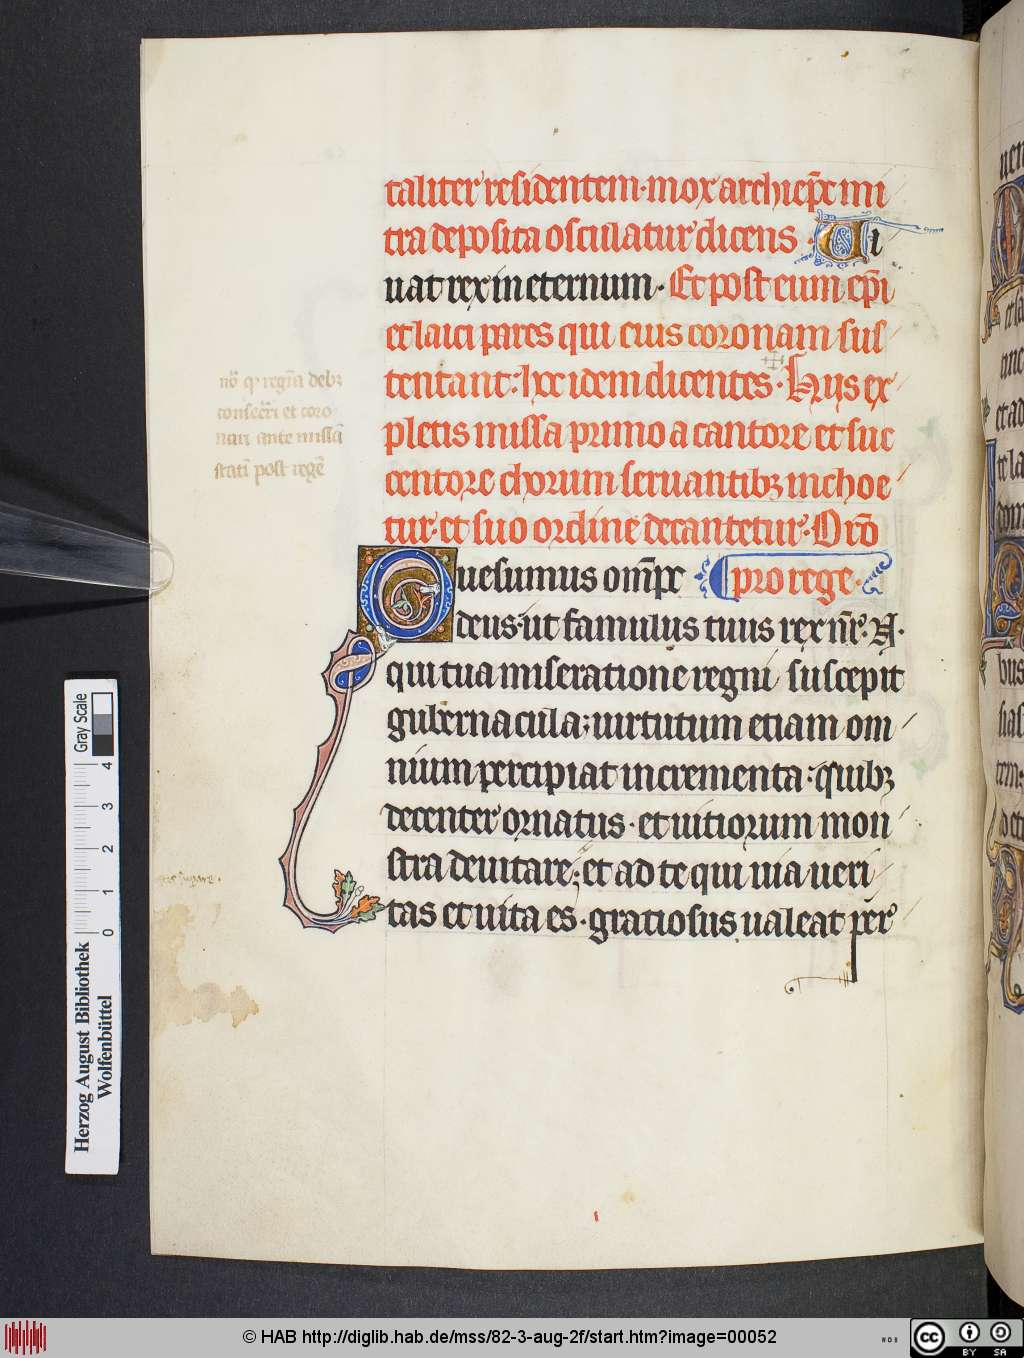 taliter residentem· mox archiep̃c mi
tra deposita osculatur dicens · Ui
uat rex in eternum· Et post eum ep̃i
et laici pares qui eius coronam sus
tentant: hoc idem dicentes· Hijs ex
pletis missa primo a cantore et suc
centore chorum seruantibꝫ inchoe
tur· et suo ordine decantetur· Oro᷉
Quesumus om̃pc pro rege·
deus· ut famulus tuus rex nr̃· N·
qui tua miseratione regni suscepit
gubernacula; uirtutum etiam om
nium percipiat incrementa: quibꝫ
decenter ornatus· et uitiorum mon
stra deuitare; et ad te qui uia ueri
tas et uita es· gratiosus ualeat per
no᷉ q regi᷉a debꝫ
consec᷉ri et coro
nari ante missa᷉
stati᷉ post rege᷉
Gray Scale
0 1 2 3 4
Herzog August Bibliothek
Wolfenbüttel
© HAB http://diglib.hab.de/mss/82-3-aug-2f/start.htm?image=00052
cc BY SA